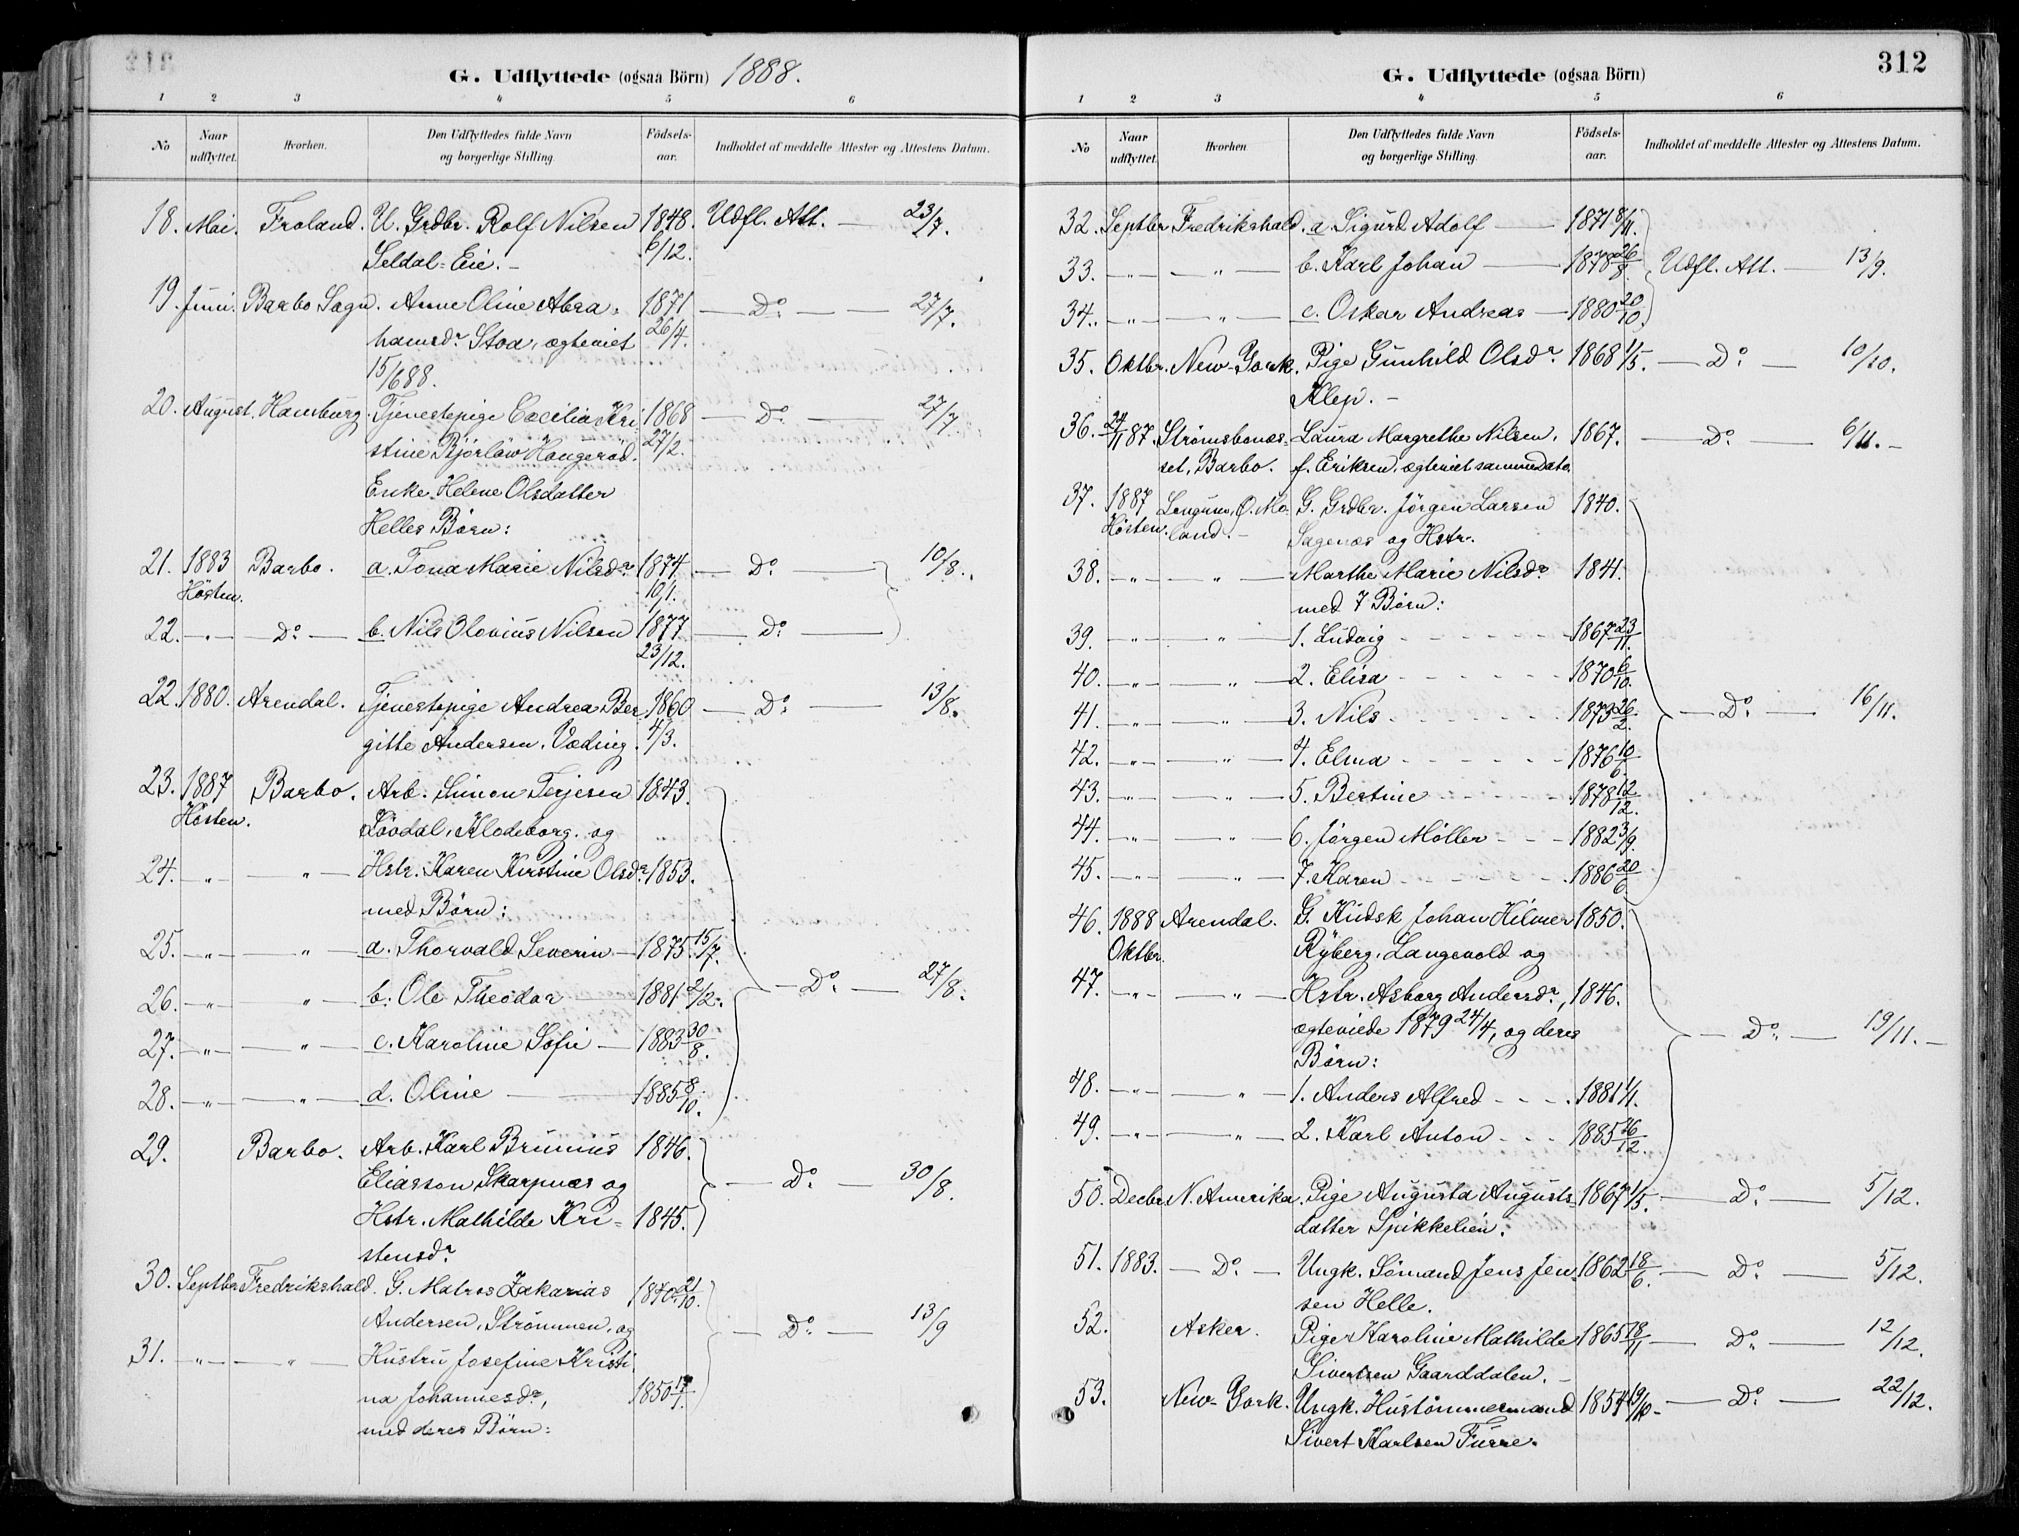 G. Udflyttede (ogsaa Börn) 1888.
1 2 3 4 5 6
No Naar udflyttet. Hvorhen. Den Udflyttedes fulde Navn og borgerlige Stilling. Födsels-aar. Indholdet af meddelte Attester og Attestens Datum.
18. Mai. Froland. U. Grdbr. Rolf Nilsen 1848. Udfl. Att. — 23/7.
Seldal-Eie. — 6/12.
19. Juni. Barbo Sogn. Anne Oline Abra- 1871 — Do. — 27/7.
hamsdr. Stoa, ægteviet 26/4.
15/6 88.
20. August. Hamburg. Tjenestepige Cæcilia Kri 1868 — Do. — 27/7.
stine Bjørlow Haugerød. 27/2.
Enke Helene Olsdatter
Helles Børn:
21. 1883 Barbo. a. Tona Marie Nilsdr. 1874. — Do. — 10/8.
Høsten. 10/1.
22. — " — Do. — b. Nils Olovius Nilsen 1877. — Do. —
23/12.
22. 1880. Arendal. Tjenestepige Andrea Ber 1860 — Do. — 13/8.
gitte Andersen, Væding. 4/3.
23. 1887 Barbo. Arb. Simon Terjesen 1843.
Høsten. Løvdal, Klodeborg, og
24. — " — " — Hstr. Karen Kirstine Olsdr. 1853.
med Børn:
25. — " — " — a. Thorvald Severin — 1875. 15/7.
26. — " — " — b. Ole Theodor — 1881. 2/2. — Do. — 27/8.
27. — " — " — c. Karoline Sofie — 1883 30/8.
28. — " — " — d. Oline — 1885 8/10.
29. Barbo. Arb. Karl Brunius 1846.
Eliasson Skarpnæs og — Do. — 30/8.
Hstr. Mathilde Kri- 1845.
stensdr.
30. Septbr. Fredrikshald. G. Matros Zakarias 1840 21/10.
Andersen, Strømmen, og — Do. — 13/9
31. — " — " — Hustru Josefine Kristi
na Johannesdr., 1850
med deres Børn:
312
G. Udflyttede (ogsaa Börn)
1 2 3 4 5 6
No Naar udflyttet. Hvorhen. Den Udflyttedes fulde Navn og borgerlige Stilling. Födsels-aar. Indholdet af meddelte Attester og Attestens Datum.
32. Septbr Fredrikshald. a. Sigurd Adolf — 1871 8/11.
33. — " — " — b. Karl Johan — 1878 26/8 Udfl. Att. — 13/9.
34. — " — " — c. Oskar Andreas — 1880 20/10.
35. Oktbr. New-York. Pige Gunhild Olsdr. 1868 1/5. — Do. — 10/10.
Klep. —
36. 24/11 87. Strømsbonæs- Laura Margrethe Nilsen, 1867. — Do. — 6/11. —
set, Barbo. f. Eriksen, ægteviet samme dato.
37. 1887 Longum, Ø. Mo- G. Grdbr. Jørgen Larsen 1840.
Høsten. land. — Sagenæs og Hstr.
38. — " — " — Marthe Marie Nilsdr. 1841.
med 7 Børn:
39. — " — " — 1. Ludvig 1867 23/11.
40. — " — " — 2. Elisa 1870 6/10.
41. — " — " — 3. Nils 1873 26/2. — Do. — 16/11.
42. — " — " — 4. Elma 1876 10/6.
43. — " — " — 5. Bertine 1878 12/12.
44. — " — " — 6. Jørgen Møller 1882 3/9.
45. — " — " — 7. Karen 1886 20/6
46. 1888 Arendal. G. Kudsk Johan Hilmer 1850.
Oktbr. Ryberg, Langevold og
47. — " — " — Hstr. Asborg Andersdr., 1846.
ægteviede 1879 24/4, og deres — Do. — 19/11. —
Børn:
48. — " — " — 1. Anders Alfred 1881 1/1.
49. — " — " — 2. Karl Anton 1885 26/12.
50. Decbr. N. Amerika. Pige Augusta Augusts- 1867 1/5. — Do. — 5/12.
datter Spikkelien.
51. 1883. — Do. — Ungk. Sømand Jens Jen- 1862 18/6. — Do. — 5/12.
sen Helle.
52. Asker. Pige Karoline Mathilde 1865 18/11 — Do. — 12/12.
Sivertsen Gaarddalen. —
53. New-York. Ungk. Hustømmermand 1854 19/10 — Do. — 22/12.
Sivert Karlsen Furre.